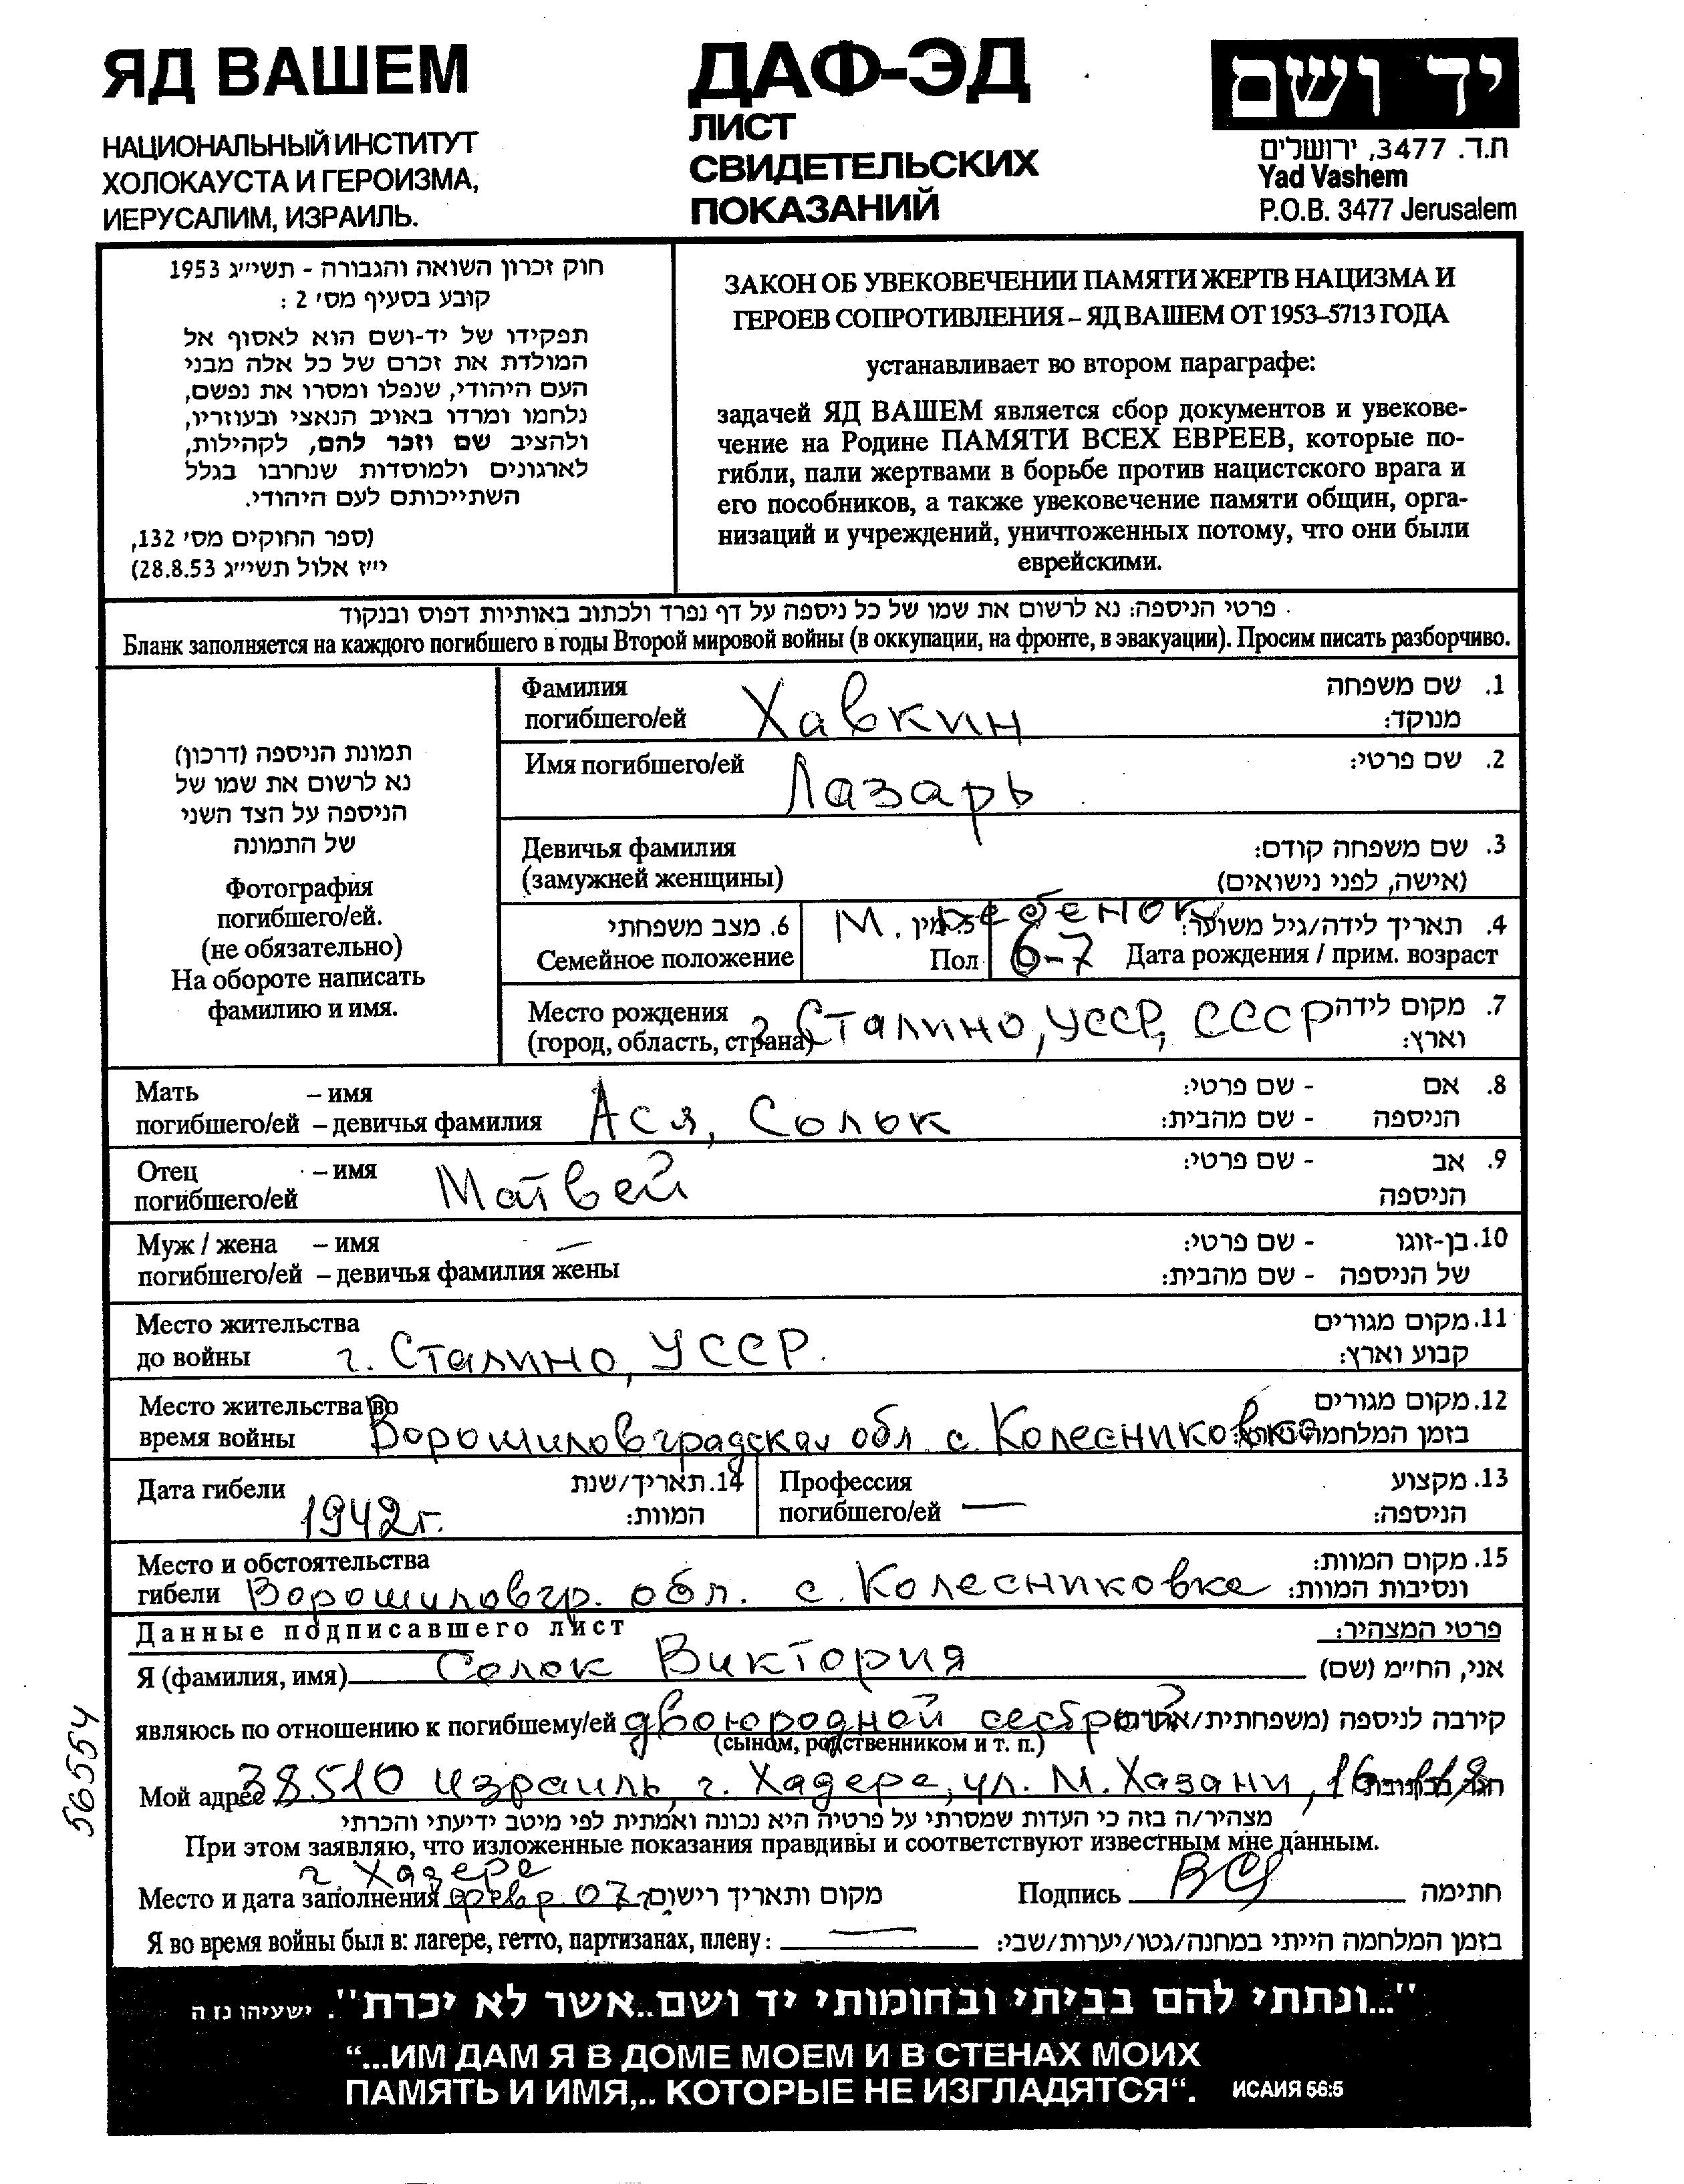 ЯД ВАШЕМ
НАЦИОНАЛЬНЫЙ ИНСТИТУТ
ХОЛОКАУСТА И ГЕРОИЗМА,
ИЕРУСАЛИМ, ИЗРАИЛЬ.
ДАФ-ЭД
ЛИСТ
СВИДЕТЕЛЬСКИХ
ПОКАЗАНИЙ
יד ושם
ת.ד. 3477, ירושלים
Yad Vashem
P.O.B. 3477 Jerusalem
חוק זכרון השואה והגבורה - תשי״ג 1953
קובע בסעיף מס׳ 2 :
תפקידו של יד-ושם הוא לאסוף אל
המולדת את זכרם של כל אלה מבני
העם היהודי, שנפלו ומסרו את נפשם,
נלחמו ומרדו באויב הנאצי ובעוזריו,
ולהציב שם וזכר להם, לקהילות,
לארגונים ולמוסדות שנחרבו בגלל
השתייכותם לעם היהודי.
(ספר החוקים מס׳ 132,
י״ז אלול תשי״ג 28.8.53)
ЗАКОН ОБ УВЕКОВЕЧЕНИИ ПАМЯТИ ЖЕРТВ НАЦИЗМА И
ГЕРОЕВ СОПРОТИВЛЕНИЯ – ЯД ВАШЕМ ОТ 1953–5713 ГОДА
устанавливает во втором параграфе:
задачей ЯД ВАШЕМ является сбор документов и увекове-
чение на Родине ПАМЯТИ ВСЕХ ЕВРЕЕВ, которые по-
гибли, пали жертвами в борьбе против нацистского врага и
его пособников, а также увековечение памяти общин, орга-
низаций и учреждений, уничтоженных потому, что они были
еврейскими.
פרטי הניספה: נא לרשום את שמו של כל ניספה על דף נפרד ולכתוב באותיות דפוס ובנקוד
Бланк заполняется на каждого погибшего в годы Второй мировой войны (в оккупации, на фронте, в эвакуации). Просим писать разборчиво.
תמונת הניספה (דרכון)
נא לרשום את שמו של
הניספה על הצד השני
של התמונה
Фотография
погибшего/ей.
(не обязательно)
На обороте написать
фамилию и имя.
Фамилия 1. שם משפחה
погибшего/ей Хавкин מנוקד:
Имя погибшего/ей Лазарь 2. שם פרטי:
Девичья фамилия 3. שם משפחה קודם:
(замужней женщины) (אישה, לפני נישואים)
6. מצב משפחתי М. 5. מין ребенок 4. תאריך לידה/גיל משוער:
Семейное положение Пол 6-7 Дата рождения / прим. возраст
Место рождения г. Сталино, УССР, СССР 7. מקום לידה
(город, область, страна) וארץ:
Мать – имя 8. אם - שם פרטי:
погибшего/ей – девичья фамилия Ася, Солок הניספה - שם מהבית:
Отец – имя 9. אב - שם פרטי:
погибшего/ей Матвей הניספה
Муж / жена – имя — 10. בן-זוגו - שם פרטי:
погибшего/ей – девичья фамилия жены של הניספה - שם מהבית:
Место жительства 11. מקום מגורים
до войны г. Сталино, УССР. קבוע וארץ:
Место жительства во 12. מקום מגורים
время войны Ворошиловградская обл. с. Колесниковка בזמן המלחמה
Дата гибели 14. תאריך/שנת
1942г. המוות:
Профессия 13. מקצוע
погибшего/ей — הניספה:
Место и обстоятельства 15. מקום המוות:
гибели Ворошиловгр. обл. с. Колесниковка ונסיבות המוות:
Данные подписавшего лист פרטי המצהיר:
Я (фамилия, имя) Солок Виктория אני, הח״מ (שם)
являюсь по отношению к погибшему/ей двоюродной сестрой קירבה לניספה (משפחתית/אחרת)
(сыном, родственником и т. п.)
Мой адрес 38510 Израиль, г. Хадера, ул. М. Хазани, 16
מצהיר/ה בזה כי העדות שמסרתי על פרטיה היא נכונה ואמתית לפי מיטב ידיעתי והכרתי
При этом заявляю, что изложенные показания правдивы и соответствуют известным мне данным.
г. Хадера
Место и дата заполнения февр. 07г. מקום ותאריך רישום Подпись חתימה
Я во время войны был в: лагере, гетто, партизанах, плену: — בזמן המלחמה הייתי במחנה/גטו/יערות/שבי:
56554
"...ונתתי להם בביתי ובחומותי יד ושם..אשר לא יכרת". ישעיהו נז ה
“...ИМ ДАМ Я В ДОМЕ МОЕМ И В СТЕНАХ МОИХ
ПАМЯТЬ И ИМЯ,.. КОТОРЫЕ НЕ ИЗГЛАДЯТСЯ“. ИСАИЯ 56:5